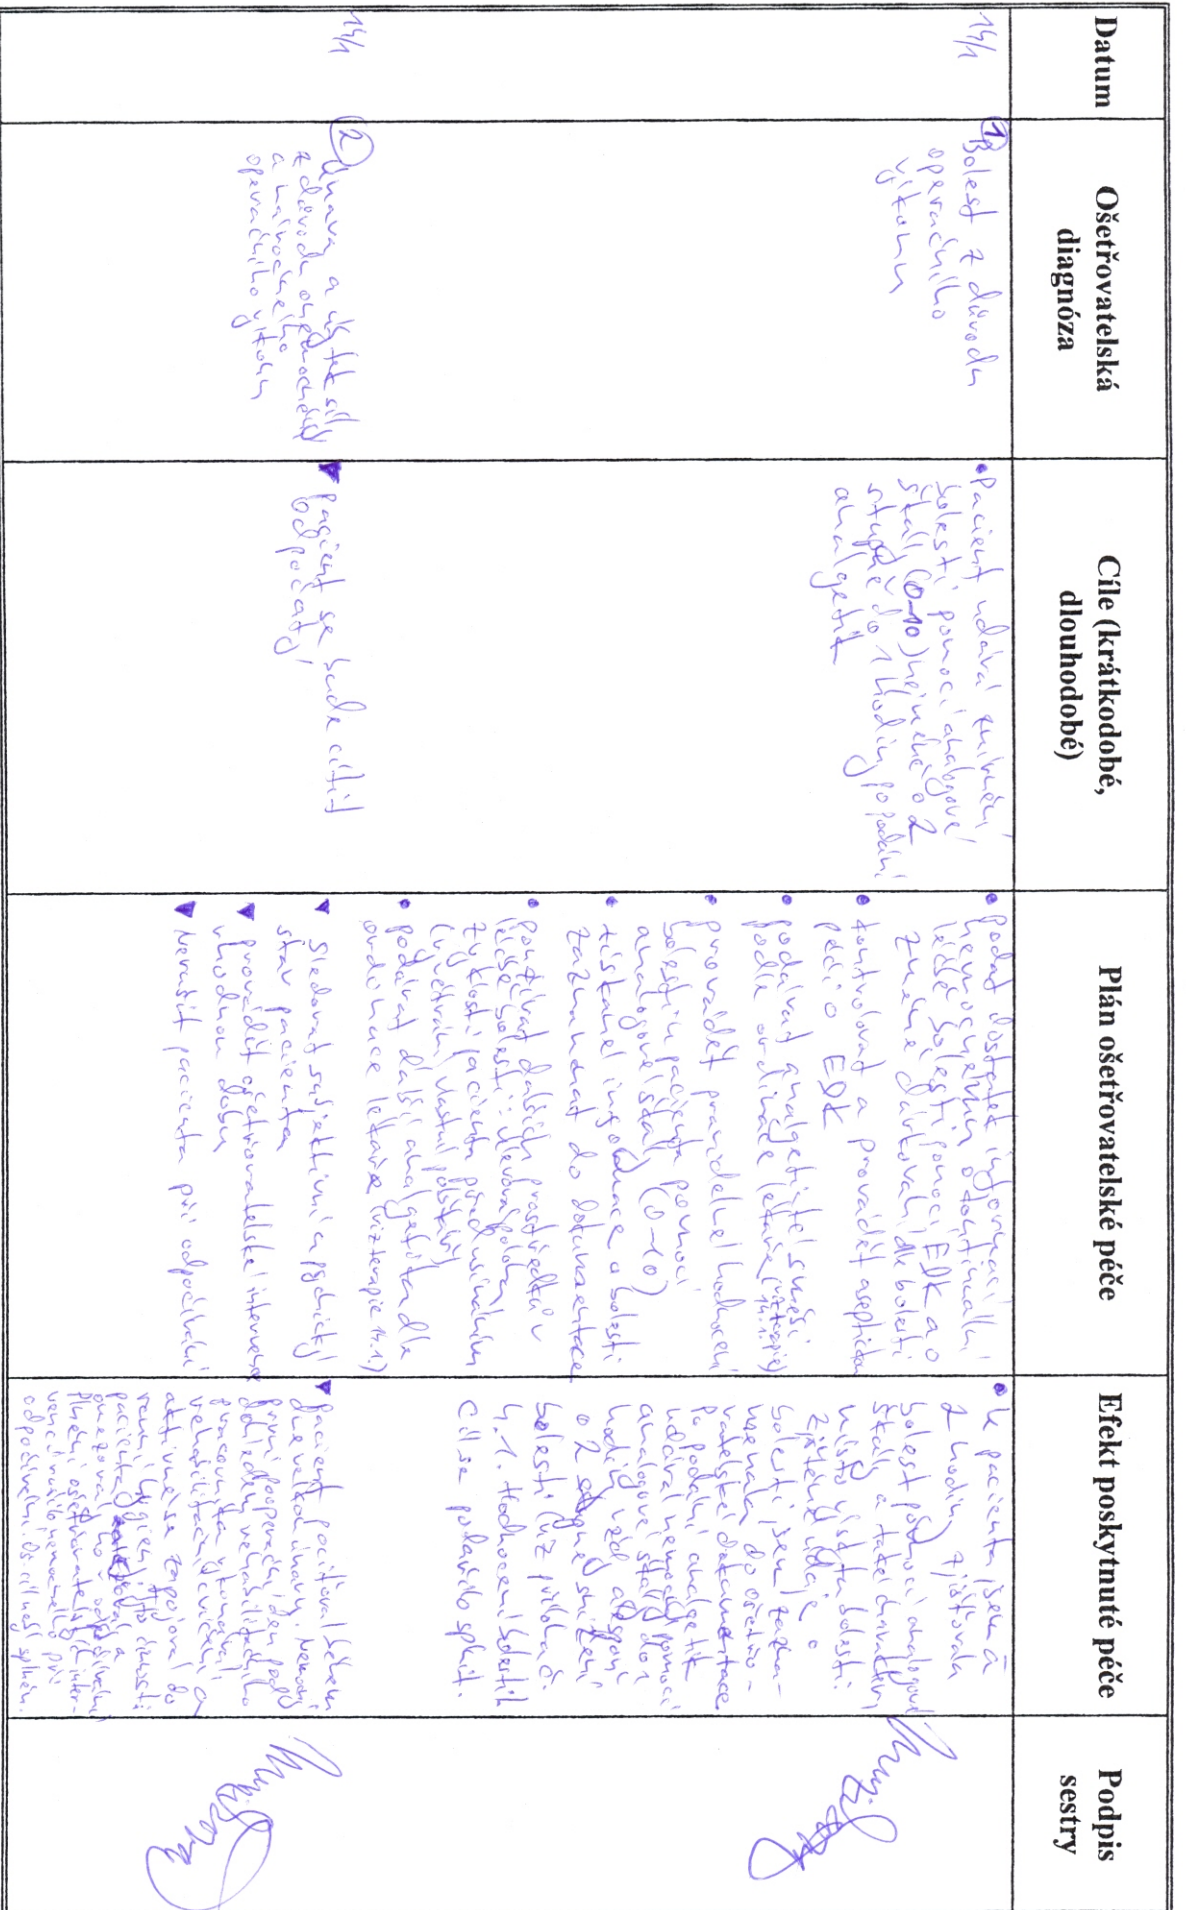 Datum
Ošetřovatelská
diagnóza
Cíle (krátkodobé,
dlouhodobé)
Plán ošetřovatelské péče
Efekt poskytnuté péče
Podpis
sestry
14/1
1 Bolest z důvodu
operačního
výkonu
• Pacient udává zmírnění
bolesti pomocí analogové
škály (0-10) nejméně o 2
stupně do 1 hodiny po podání
analgetik
• Podat dostatek informací
nemocnému o kontinuální
léčbě bolesti pomocí EDK a o
změně dávkování dle bolesti
• kontrolovat a provádět aseptickou
péči o EDK
• podávat analgetické směsi
podle ordinace lékaře (viz terapie
14.1.)
• provádět pravidelné hodnocení
bolesti u pacienta pomocí
analogové škály (0-10)
• získané informace o bolesti
zaznamenat do dokumentace
• používat dalších prostředků v
léčbě bolesti: úlevová poloha,
zvyklosti pacienta před usínáním
(vyvětrání, vlastní polštářky)
• podávat další analgetika dle
ordinace lékaře (viz terapie 14.1.)
• U pacienta jsem á
2 hodiny zjišťovala
bolest pomocí analogové
škály a také charakter,
místo výskytu bolesti.
Zjištěné údaje o
bolesti jsem zazna-
menala do ošetřo-
vatelské dokumentace
Po podání analgetik
udával nemocný pomocí
analogové škály do 1
hodiny vždy alespoň
o 2 stupně snížení
bolesti (viz příloha č.
4.1. Hodnocení bolesti).
Cíl se podařilo splnit.
14/1
2 Únava a úbytek sil
z důvodu onemocnění
a náročného
operačního výkonu
▼ Pacient se bude cítit
odpočatý
▼ Sledovat subjektivní a psychický
stav pacienta
▼ provádět ošetřovatelské intervence
vhodnou dobu
▼ Nerušit pacienta při odpočívání
▼ Pacient pociťoval během
dne velkou únavu. Nemocný
první pooperační den pod
dohledem rehabilitačního
pracovníka vykonával
rehabilitační cvičení a
aktivně se zapojoval do
ranní hygieny. Tyto činnosti
pacienta a
omezoval ho odpočívání
Plnění ošetřovatelských inter-
vencí nerušilo nemocného při
odpočívání. Oš. cíl nebyl splněn.